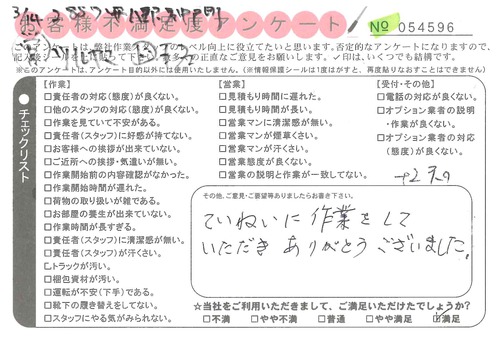 お客様不満足度アンケート
No 054596
このアンケートは、弊社作業スタッフのレベル向上に役立てたいと思います。否定的なアンケートになりますので、
※このアンケートは、アンケート目的以外には使用いたしません。(※情報保護シールは1度はがすと、再度貼りなおすことはできません)
●チェックリスト
【作業】
□責任者の対応(態度)が良くない。
□他のスタッフの対応(態度)が良くない。
□作業を見ていて不安がある。
□責任者(スタッフ)に好感が持てない。
□お客様への挨拶が出来ていない。
□ご近所への挨拶・気遣いが無い。
□作業開始前の内容確認がなかった。
□作業開始時間が遅れた。
□荷物の取り扱いが雑である。
□お部屋の養生が出来ていない。
□作業時間が長すぎる。
□責任者(スタッフ)に清潔感が無い。
□責任者(スタッフ)が汗くさい。
□トラックが汚い。
□梱包資材が汚い。
□運転が不安(下手)である。
□靴下の履き替えをしてない。
□スタッフにやる気がみられない。
【営業】
□見積もり時間に遅れた。
□見積もり時間が長い。
□営業マンに清潔感が無い。
□営業マンが煙草くさい。
□営業マンが汗くさい。
□営業態度が良くない。
□営業の説明と作業が一致してない。
【受付・その他】
□電話の対応が良くない。
□オプション業者の説明
・作業が良くない。
□オプション業者の対応
(態度)が良くない。
その他、ご意見・ご要望等ありましたらお書き下さい。
ていねいに作業をして
いただきありがとうございました。
☆当社をご利用いただきまして、ご満足いただけたでしょうか?
□不満 □やや不満 □普通 □やや満足 ☑満足